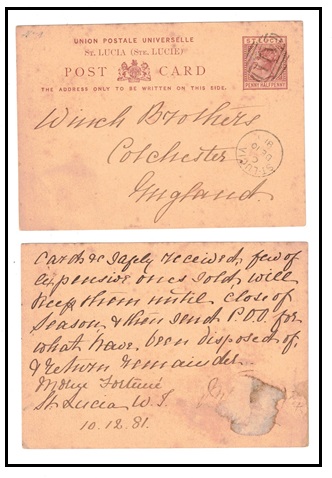 UNION POSTALE UNIVERSELLE
ST. LUCIA (STE. LUCIE)
POST CARD
THE ADDRESS ONLY TO BE WRITTEN ON THIS SIDE.
ST. LUCIA
PENNY HALF PENNY
Winch Brothers
Colchester
England
ST LUCIA
Cards &c safely received, few of
expensive ones sold, will
keep them until close of
Season, & then send P.O.O. for
what have been disposed of,
& return remainder
St Lucia W.I.
10.12.81.